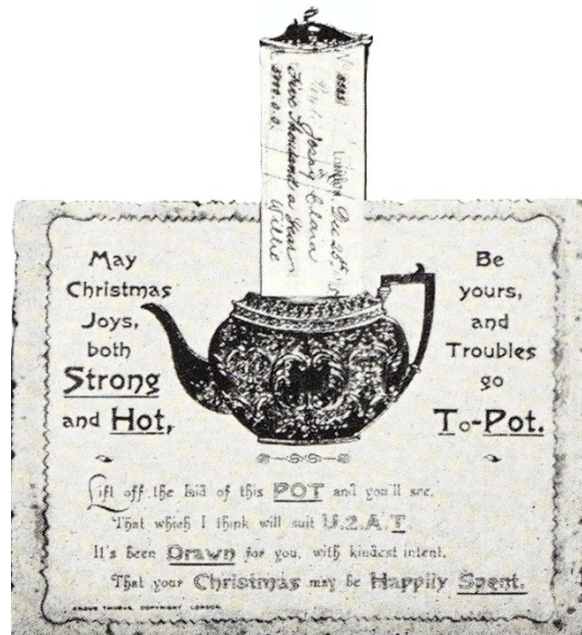 London Dec 25th
Five Thousand a Year
May
Christmas
Joys,
both
Strong
and Hot,
Be
yours,
and
Troubles
go
To-Pot.
Lift off the lid of this POT and you'll see,
That which I think will suit U.2.A.T.
It's been Drawn for you, with kindest intent,
That your Christmas may be Happily Spent.
ANGUS THOMAS, COPYRIGHT LONDON.